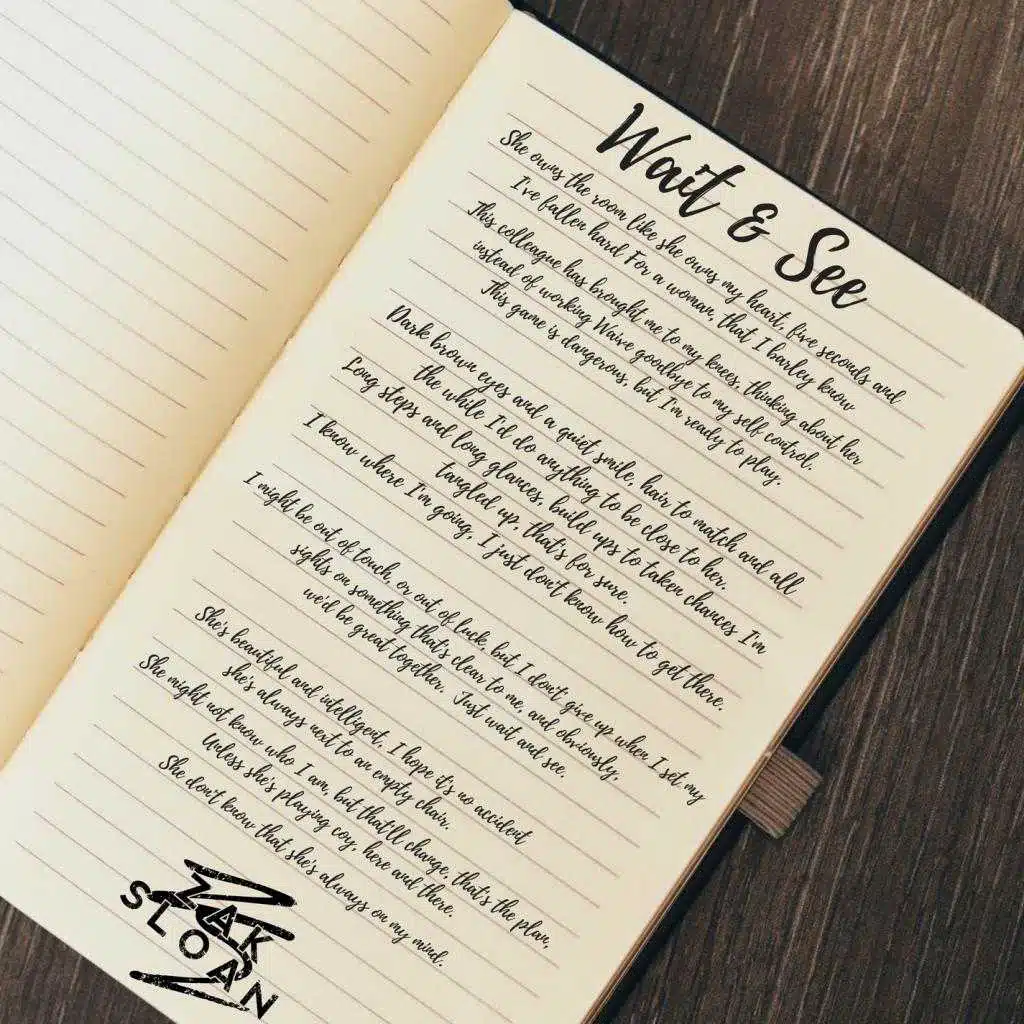 Wait & See
She owns the room like she owns my heart, five seconds and
I've fallen hard For a woman, that I barley know
This colleague has brought me to my knees, thinking about her
instead of working Waive goodbye to my self control.
This game is dangerous, but I'm ready to play.
Dark brown eyes and a quiet smile, hair to match and all
the while I'd do anything to be close to her.
Long steps and long glances, build ups to taken chances I'm
tangled up, that's for sure.
I know where I'm going, I just don't know how to get there.
I might be out of touch, or out of luck, but I don't give up when I set my
sights on something that's clear to me, and obviously,
we'd be great together. Just wait and see.
She's beautiful and intelligent, I hope it's no accident
she's always next to an empty chair.
She might not know who I am, but that'll change, that's the plan,
Unless she's playing coy, here and there.
She don't know that she's always on my mind.
ZAK
SLOAN